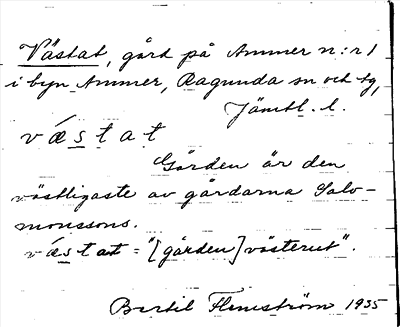 Västat, gård på Ammer n:r 1
i byn Ammer, Ragunda sn och tg,
Jämtl. l.
v ǽ s t a t
Gården är den
västligaste av gårdarna Salo-
monssons.
v ǽ s t at = "[gården] västerut".
Bertil Flemström 1935